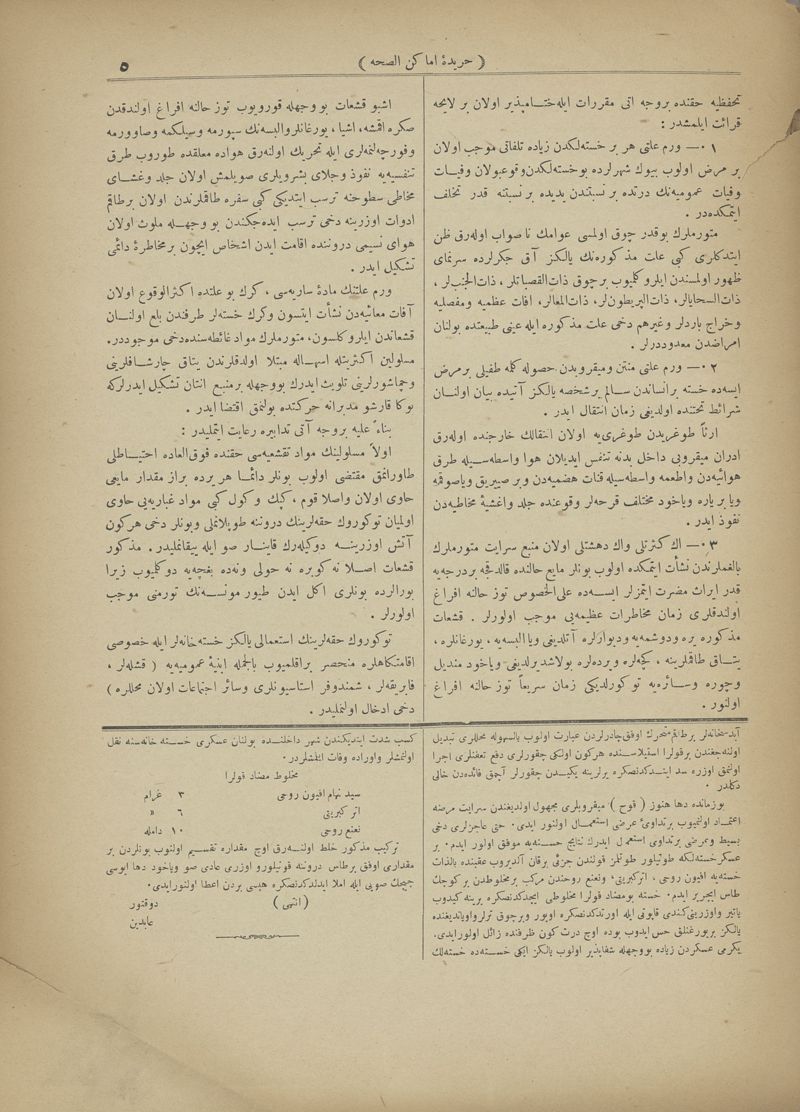 ( جریدهٔ اماكن الصحه )
٥
تحفظیه حقنده بروجه آتی مقررات ایله ختـامپذیر اولان بر لایحه
قرائت ایلمشدر :
٠١ — ورم علتی هر بر خسته‌لكدن زیاده تلفاتی موجب اولان
بر مرض اولوب بیوك شهرلرده بوخسته‌لكدن وقوعبولان وفیـات
وفیات عمومیه‌نك درتده بر نسبتندن یدیده بر نسبتنه قدر تخلف
ایتمكده‌در .
متورملرك بوقدر چوق اولمسی عوامك ناصواب اوله‌رق ظن
ایتدكلری كبی علت مذكوره‌نك یالكز آق جكرلرده سرنمای
ظهور اولمسندن ایلرو كلمیوب برچوق ذات‌القصباتلر ، ذات‌الجنبلر ،
ذات‌السحایالر، ذات‌البریطونلر، ذات‌المعالر، افات عظمیه ومفصلیه
وخراج باردلر وغیرهم دخی علت مذكوره ایله عینی طبیعتده بولنان
امراضدن معدوددرلر .
٠٢ — ورم علتی منتن ومیقروبدن حصوله كلمه طفیلی برمرض
ایسه‌ده خسته بر انساندن سـالم بر شخصه یالكز آتیده بیان اولنـان
شرائط تحتنده اولدیغی زمان انتقال ایدر .
ارثاً طوغریدن طوغری‌یه اولان انتقالك خارجنده اوله‌رق
ادران میقروبی داخل بدنه تنفس ایدیلان هوا واسطه‌سـیله طرق
هوائیه‌دن واطعمه واسطه‌سیله قنات هضمیه‌دن وبر صییریق ویاصوقمه
ویا بر یاره ویاخود مختلف قرحه‌لر وقوعنده جلد واغشیهٔ مخاطیه‌دن
نفوذ ایدر .
٠٣ — اك كثرتلی واك دهشتلی اولان منبع سرایت متورملرك
بالغملرندن نشأت ایتمكده اولوب بونلر مایع حالنده قالدقجه بر درجه‌یه
قدر ایراث مضرت ایتمزلر ایسـه‌ده علی‌الخصوص توز حالنه افراغ
اولندقلری زمان مخاطرات عظیمه‌یی موجب اولورلر . قشعات
مذكوره یره ودوشمه‌یه ودیوارلره آتلدیغی ویا البسه‌یه ، یورغانلره ،
یتـاق طاقملرینه ، كیجه‌لره وپرده‌لره بولاشدیرلدیغی ویاخود مندیل
وچوره وسـائره‌یه توكورلدیكی زمان سریعاً توز حالنه افراغ
اولنور .
اشبو قشعات بو وجهله قورویوب توز حالنه افراغ اولندقدن
صكره اقمشه، اشیا ، یورغانلر والبسه‌نك سپورمه وسیلكمه وصاوورمه
وفورچه‌لنمه‌لری ایله تحریك اولنه‌رق هواده معلقده طوروب طرق
تنفسیه‌یه نفوذ وجلای بشرویلری صویلمش اولان جلد وغشـای
مخاطی سطوحنه ترسب ایتدیكی كبی سفره طاقملرندن اولان بر طاقم
ادوات اوزرینه دخی ترسب ایده‌جكندن بو وجهـله ملوث اولان
هوای نسیمی دروننده اقامت ایدن اشخاص ایچون بر مخاطرهٔ دائمی
تشكیل ایدر .
ورم علتنك مادهٔ ساریه‌سی ، كرك بو علتده اكثرالوقوع اولان
آفات معائیه‌دن نشأت ایتسون وكرك خسته‌لر طرفندن بلع اولنـان
قشعاتدن ایلرو كلسون ، متورملرك مواد غائطه‌سنده دخی موجوددر.
مسلولین اكثریتله اسهـاله مبتلا اولدقلرندن یتاق چارشـافلرینی
وچماشورلرینی تلویث ایدرك بووجهله بر منبع انتان تشكیل ایدرلركه
بوكا قارشو مدبرانه حركتده بولنمق اقتضا ایدر .
بناءً علیه بروجه آتی تدابیره رعایت ایتملیدر :
اولاً مسلولینك مواد تقشعیه‌سی حقنده فوق‌العاده احتیـاطلی
طاورانمق مقتضی اولوب بونلر دائمـا هر یرده براز مقدار مایعی
حاوی اولان واصلا قوم ، كپك وكول كبی مواد غباریه‌یی حاوی
اولمیان توكوروك حقه‌لرینك دروننه طوپلانملی وبونلر دخی هركون
آتش اوزرینـه دوكیله‌رك قاینـار صو ایله ییقانملیدر . مذكور
قشعات اصـلا نه كوبره نه حولی ونه‌ده بغچه‌یه دوكلمیوب زیرا
بورالرده بونلری اكل ایدن طیور مونسـه‌نك تورمنی موجب
اولورلر .
توكوروك حقه‌لرینك استعمالی یالكز خسته‌خانه‌لر ایله خصوصی
اقامتكاهلره منحصر براقلمیوب بالجمله ابنیهٔ عمومیه‌یه ( قشله‌لر ،
فابریقه‌لر ، شمندوفر استاسیونلری وسائر اجتماعات اولان محللره )
دخی ادخال اولنملیدر .
آبدستخانه‌لر بر طاقم متحرك اوفق چادرلردن عبارت اولوب بالسهوله محللری تبدیل
اولنه‌جغندن بر قولرا استیلاسـنده هركون اولكی چقورلری دفع تعفنلری اجرا
اولنمق اوزره سد ایتـدكدنصكره یرلرینه یكیـدن چقورلر آچمق فائده‌دن خالی
دكلدر .
بوزمانده دها هنوز ( قوح ) میقروبلری مجهول اولدیغندن سرایت مرضه
اعتمـاد اولنمیوب بر تداوئ عرضی استعمـال اولنور ایدی . حتی عاجزلری دخی
بسیط وعرضی بر تداوی استعمل ایدرك نتایج حسنه‌یه موفق اولور ایدم . بر
عسكر خسته‌لكه طوتیلور طوتلمز قولندن جزئی بر قان آلدیروب عقبنده بالذات
خسته‌یه افیون روحی ، اتركبریتی، ونعنع روحندن مركب بر مخلوطدن بر كوچك
طاس ایچیریر ایدم . خسته بومضاد قولرا مخلوطی ایچدكدنصكره یرینه كیدوب
یاتیر واوزرینی كندی قاپوتی ایله اورتدكدنصكره اویور وبر چوق ترلر واویاندیغنده
یالكز بر یورغنلق حس ایدوب بوده اوچ درت كون ظرفنده زائل اولورایدی .
یكرمی عسكردن زیاده بووجهله شفاپذیر اولوب یالكز ایكی خسـته‌ده خسته‌لك
كسب شدت ایتدیكندن شهر داخلنـده بولنان عسكری خسـته خانه‌سنه نقل
اولنمشلر واوراده وفات ایتمشلردر.
مخلوط مضاد قولرا
سیدنهام افیون روحی ٣ غرام
اتر كبریتی ٦ »
نعنع روحی ١٠ دامله
تركیب مذكور خلط اولنـه‌رق اوچ مقداره تقسـیم اولنوب بونلردن بر
مقداری اوفق بر طاس دروننه قونیلورو اوزری عادی صو ویاخود دها ایوسی
چیچك صویی ایله املا ایدلدكدنصكره هپسی بردن اعطا اولنورایدی.
( انتهی ) دوقتور
عابدین